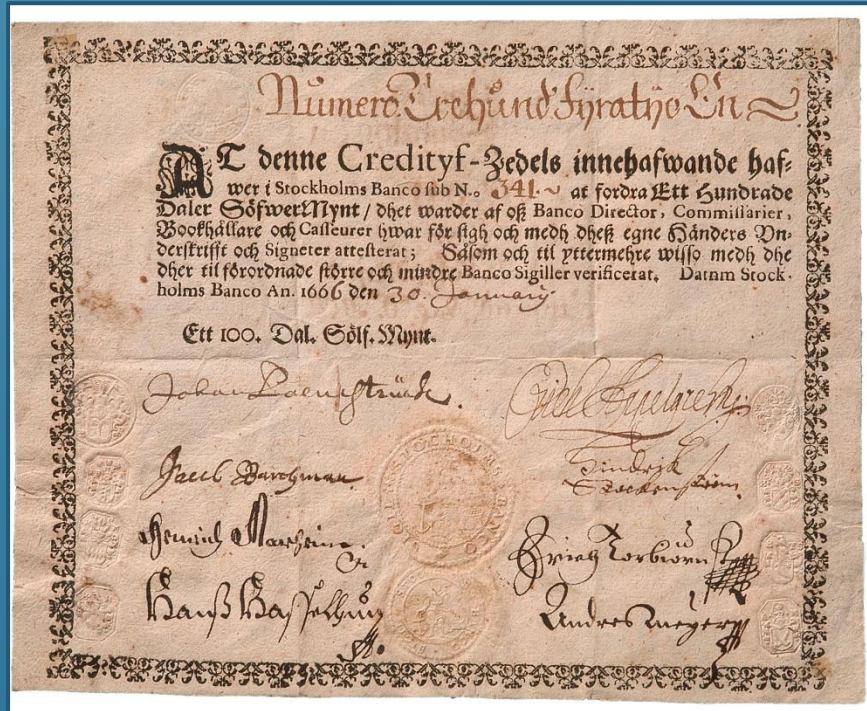 Numero Trehund Fyratyo En
AT denne Credityf-Zedels innehafwande haf-
wer i Stockholms Banco sub N.o 341. at fordra Ett Hundrade
Daler SöfwerMynt / dhet warder af oß Banco Director, Commissarier,
Bookhållare och Casseurer hwar för sigh och medh dheß egne Händers Vn-
derskrifft och Signeter attesterat; Såsom och til yttermehre wisso medh dhe
dher til förordnade större och mindre Banco Sigiller verificerat. Datnm Stock-
holms Banco An. 1666 den 30. January
Ett 100. Dal. Sölf. Mynt.
Johan
Jacob
Hindrijk
Henrich
Erich Torbiörn
Hanß
Andres Meyer
STOCHOLMS BANCO